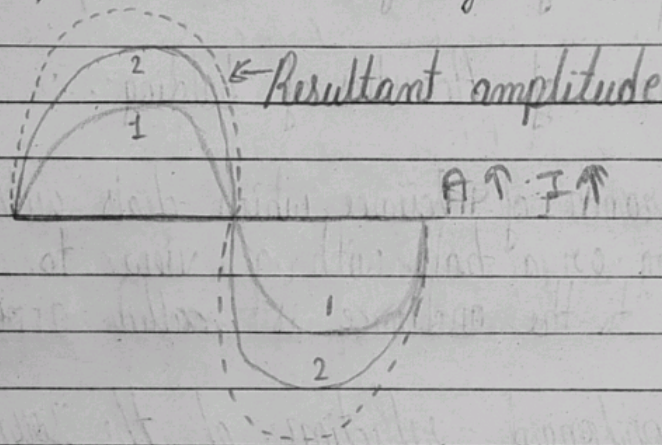 2
← Resultant amplitude
1
A ↑ I ↑
1
2